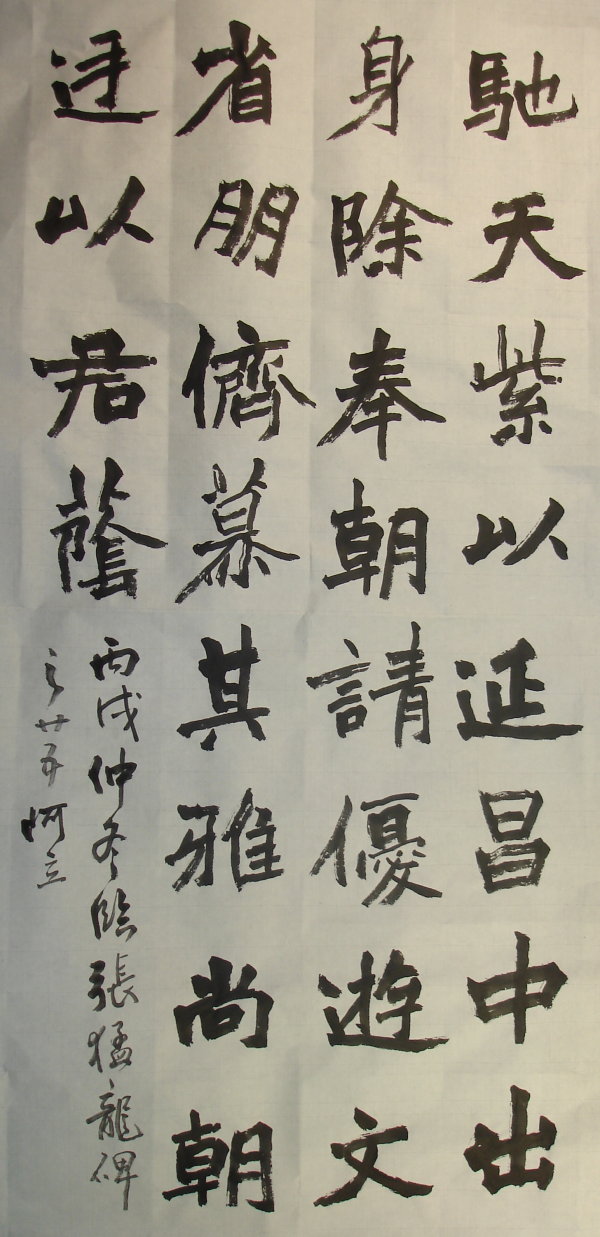 馳天紫以延昌中出
身除奉朝請優遊文
省朋儕慕其雅尚朝
廷以君蔭
丙戌仲冬臨張猛龍碑
之廿五